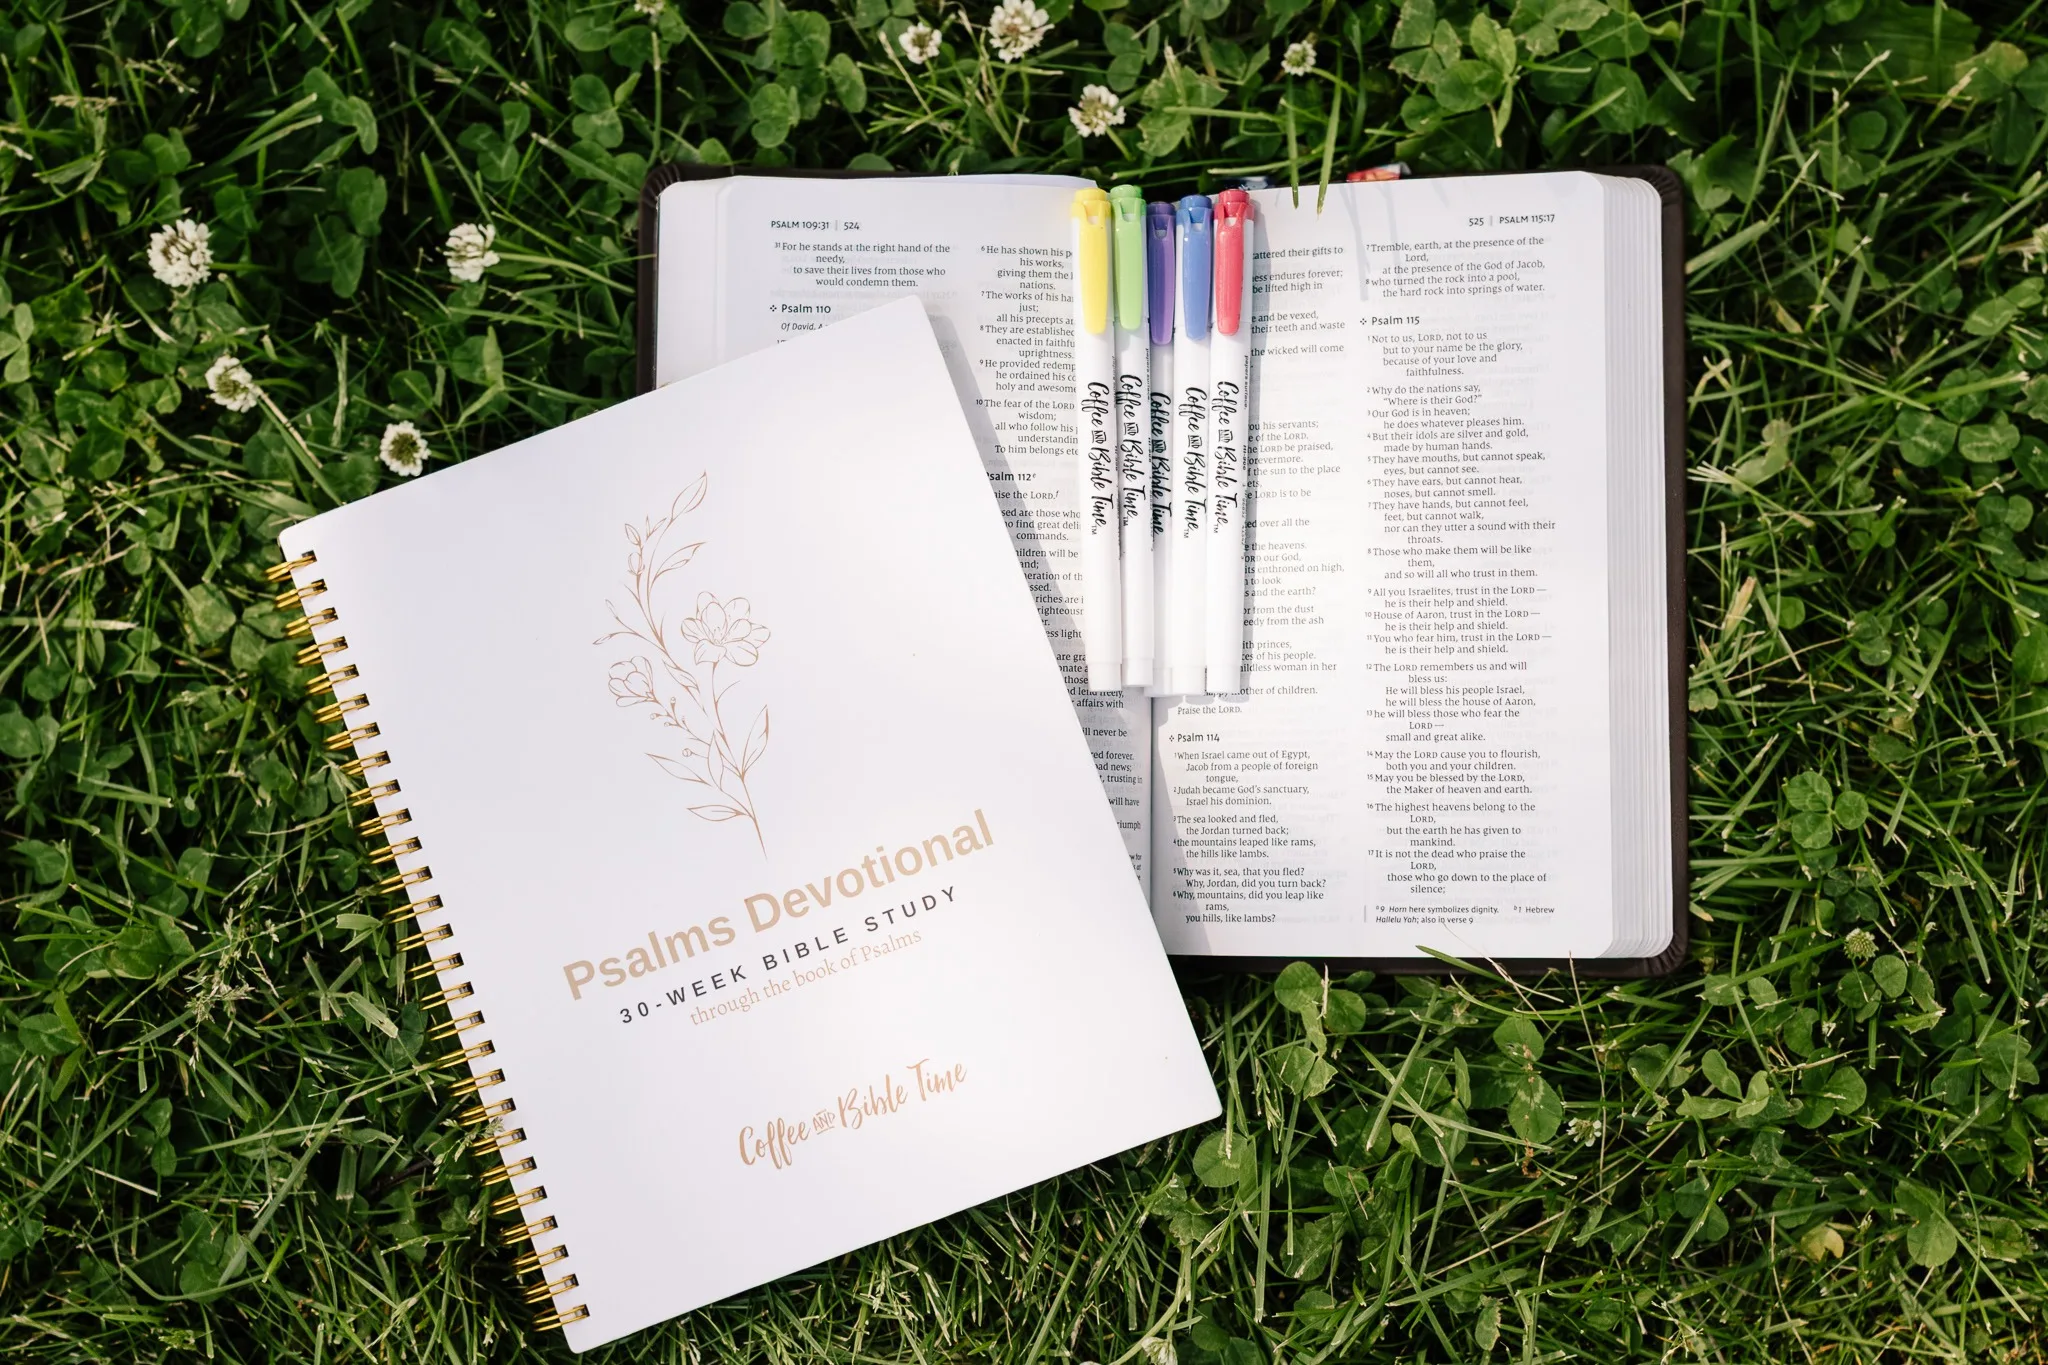 PSALM 109:31 | 524
31 For he stands at the right hand of the
needy,
to save their lives from those who
would condemn them.
Psalm 110
Of David. A
6 He has shown his
his works,
giving them the
nations.
7 The works of his
just;
all his precepts
8 They are established
enacted in
uprightness.
9 He provided
he ordained his
holy and awesome
10 The fear of the LORD
wisdom;
all who follow his
To him belongs
Psalm 112
the LORD.
are those who
find great
commands.
will be
riches are
light
those
lend freely,
affairs with
will never be
forever.
news;
trusting in
will have
Coffee AND Bible Time TM
Coffee AND Bible Time TM
Coffee AND Bible Time
Coffee AND Bible Time TM
Coffee AND Bible Time TM
their gifts to
endures forever;
be lifted high in
and be vexed,
their teeth and waste
the wicked will come
his servants;
of the LORD.
be praised,
of the sun to the place
LORD is to be
over all the
the heavens.
our God,
enthroned on high,
to look
and the earth?
from the dust
from the ash
princes,
of his people.
woman in her
mother of children.
Praise the LORD.
Psalm 114
1 When Israel came out of Egypt,
Jacob from a people of foreign
tongue,
2 Judah became God's sanctuary,
Israel his dominion.
3 The sea looked and fled,
the Jordan turned back;
4 the mountains leaped like rams,
the hills like lambs.
5 Why was it, sea, that you fled?
Why, Jordan, did you turn back?
6 Why, mountains, did you leap like
rams,
you hills, like lambs?
525 | PSALM 115:17
7 Tremble, earth, at the presence of the
Lord,
at the presence of the God of Jacob,
8 who turned the rock into a pool,
the hard rock into springs of water.
Psalm 115
1 Not to us, LORD, not to us
but to your name be the glory,
because of your love and
faithfulness.
2 Why do the nations say,
"Where is their God?"
3 Our God is in heaven;
he does whatever pleases him.
4 But their idols are silver and gold,
made by human hands.
5 They have mouths, but cannot speak,
eyes, but cannot see.
6 They have ears, but cannot hear,
noses, but cannot smell.
7 They have hands, but cannot feel,
feet, but cannot walk,
nor can they utter a sound with their
throats.
8 Those who make them will be like
them,
and so will all who trust in them.
9 All you Israelites, trust in the LORD —
he is their help and shield.
10 House of Aaron, trust in the LORD —
he is their help and shield.
11 You who fear him, trust in the LORD —
he is their help and shield.
12 The LORD remembers us and will
bless us:
He will bless his people Israel,
he will bless the house of Aaron,
13 he will bless those who fear the
LORD —
small and great alike.
14 May the LORD cause you to flourish,
both you and your children.
15 May you be blessed by the LORD,
the Maker of heaven and earth.
16 The highest heavens belong to the
LORD,
but the earth he has given to
mankind.
17 It is not the dead who praise the
LORD,
those who go down to the place of
silence;
a 9 Horn here symbolizes dignity. b 1 Hebrew
Hallelu Yah; also in verse 9
Psalms Devotional
30-WEEK BIBLE STUDY
through the book of Psalms
Coffee AND Bible Time